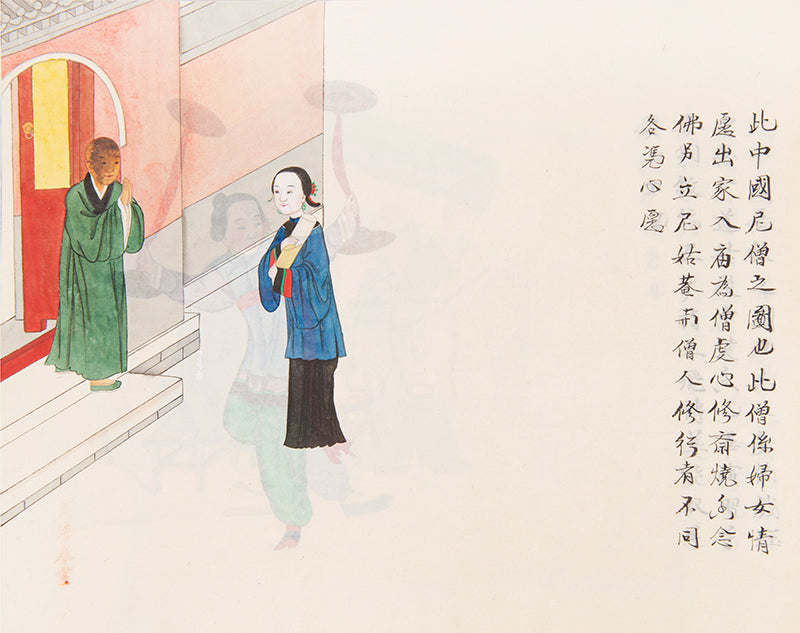 此中國尼僧之圖也此僧係婦女情
愿出家入庙為僧虔心修齋燒香念
佛另立尼姑菴与僧人修行有不同
各憑心愿